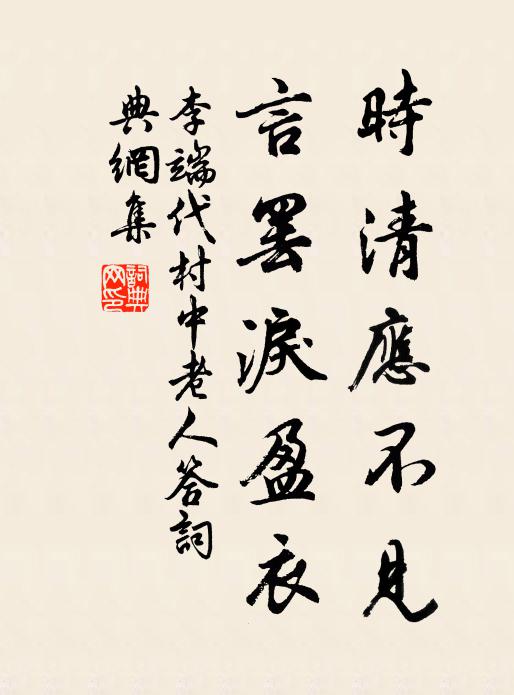 時清應不見
言罷淚盈衣
李端代村中老人答詞
典網集
詞典网印